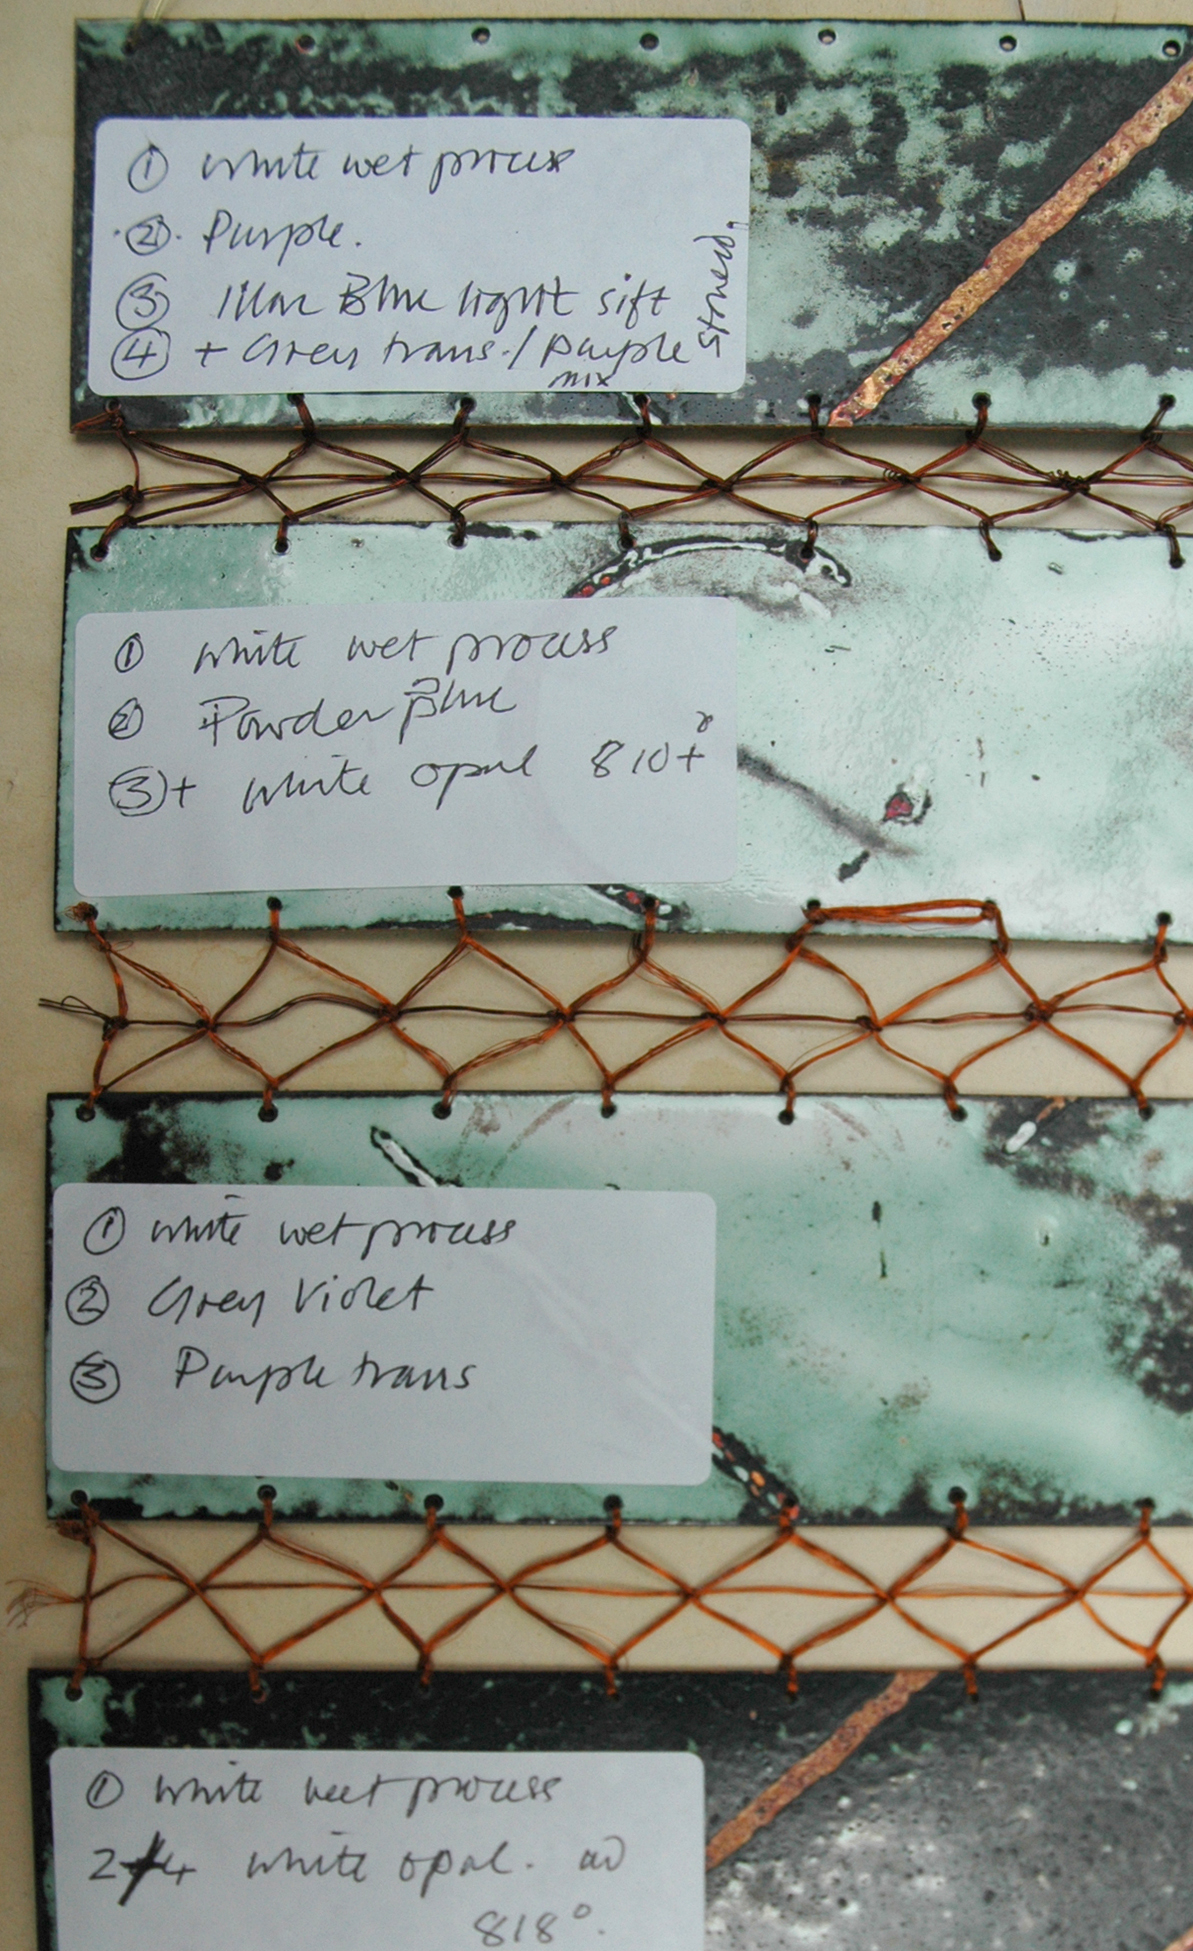 ① White wet process
② Purple.
③ lilac Blue light sift
④ + Grey trans. / purple
mix
Stoned.
① White wet process
② Powder Blue
③ + White opal 810+°
① White wet process
② Grey Violet
③ Purple trans
① White wet process
white opal.
818°.